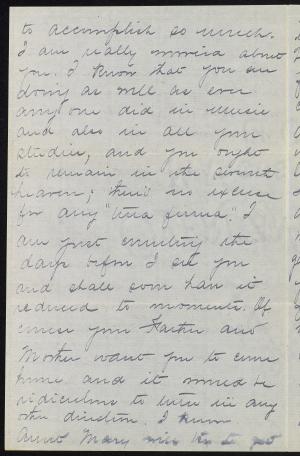 to accomplish so much.
I am really worried about
you. I know that you are
doing as well as ever
any one did in music
and also in all your
studies, and you ought
to remain in the
heaven; there's no excuse
for any "terra firma." I
am just counting the
days before I see you
and shall soon have it
reduced to moments. Of
course your Father and
Mother want you to come
home and it would be
ridiculous to turn in any
other direction. I know
Aunt Mary will to get